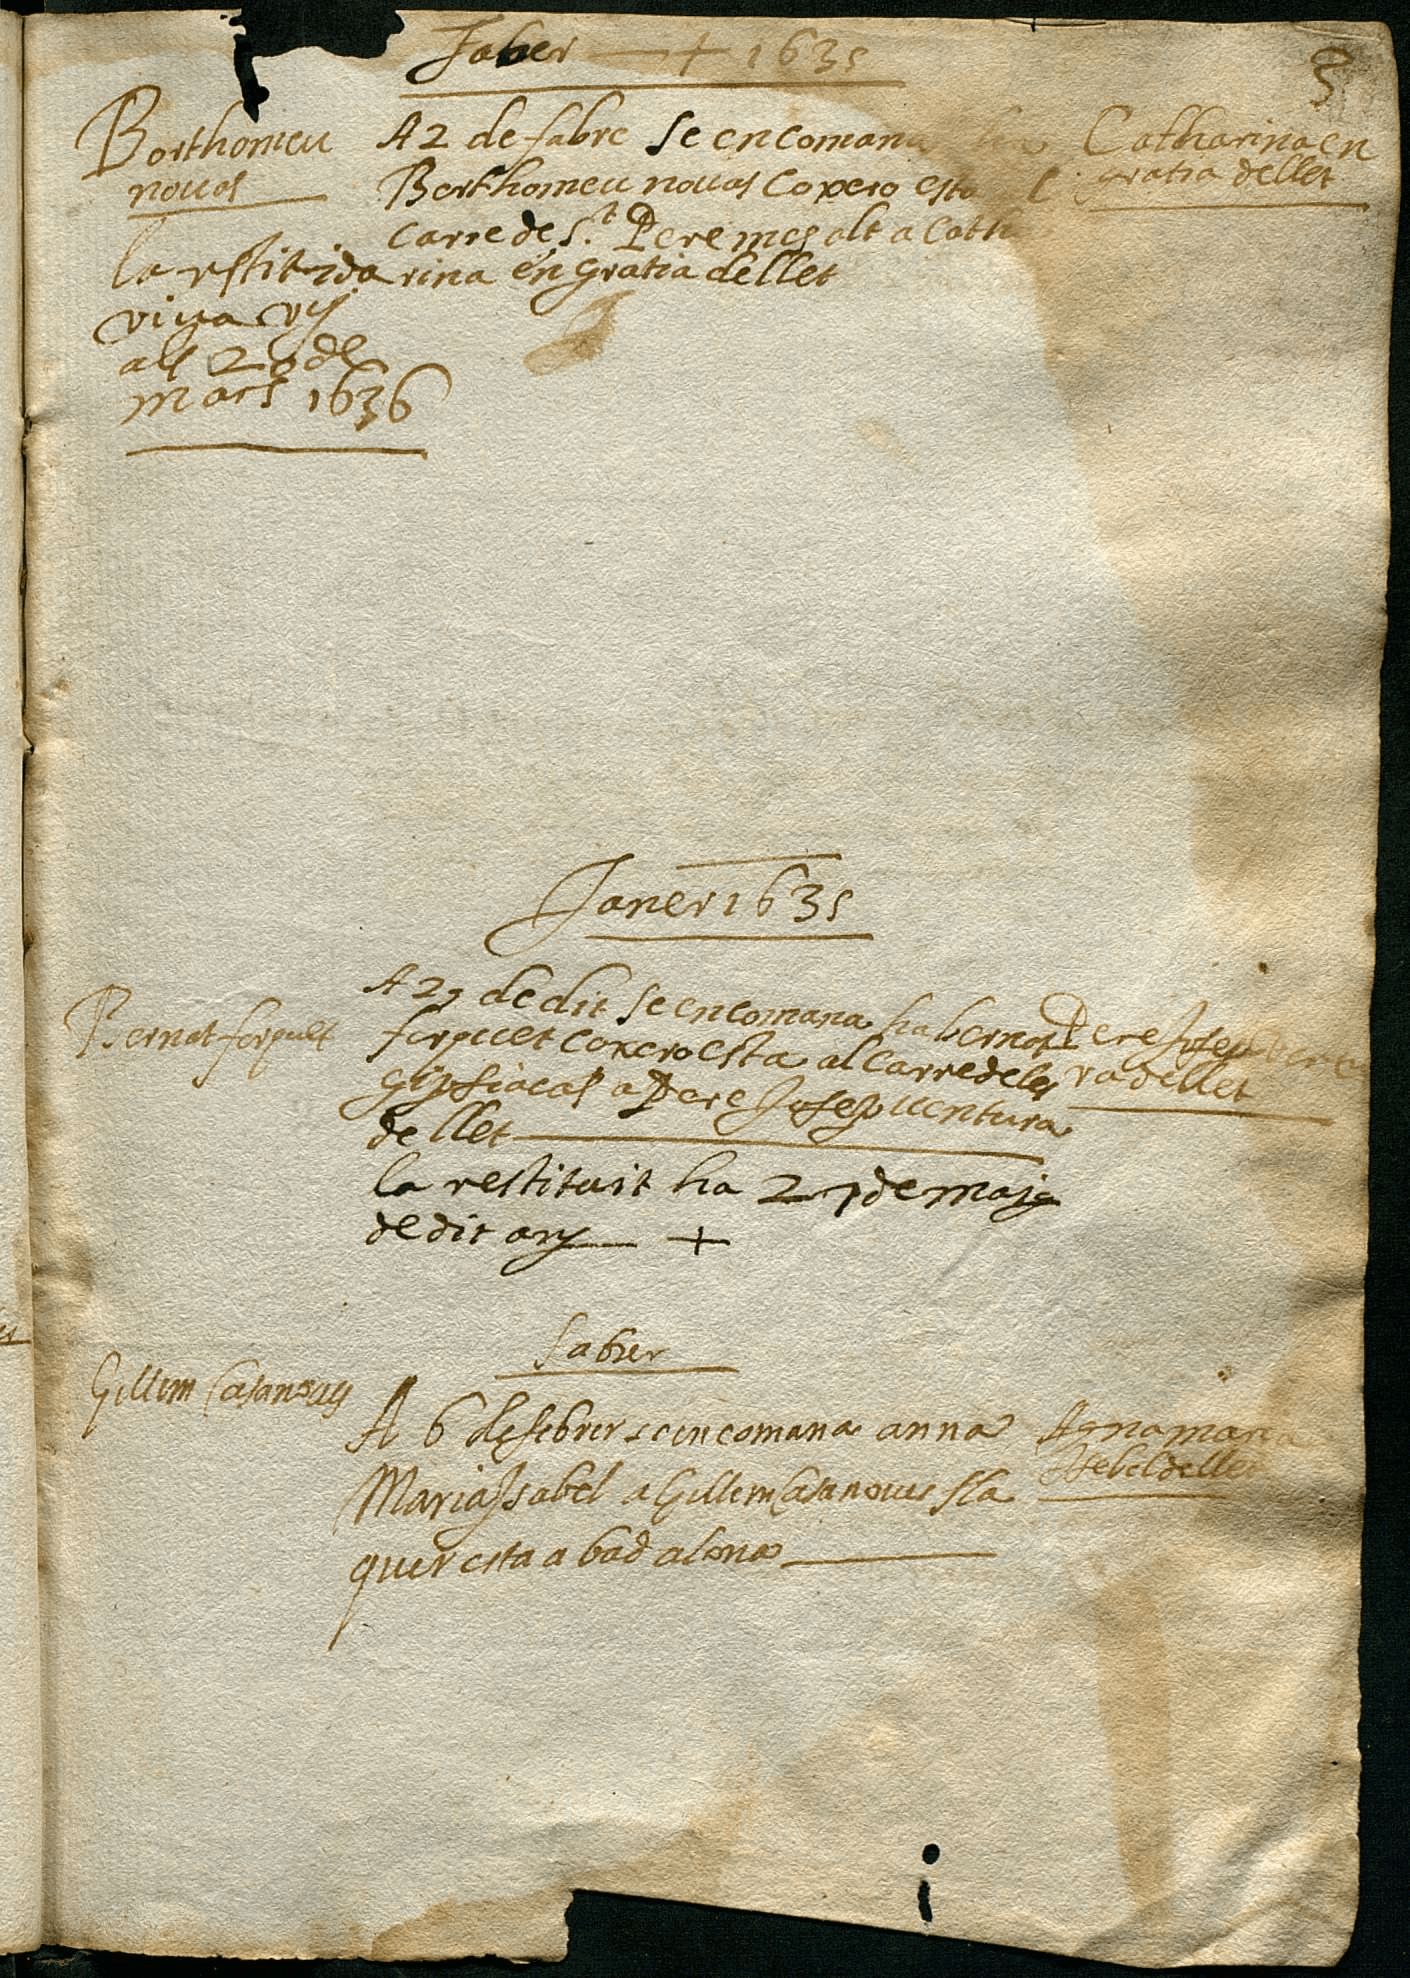 Faber + 1635
3
Borthomeu
novas
A 2 de fabre se encomana ha
Berthomeu novas Coxero esta
carre de St. Pere mes alt a Cath
rina engratia de llet
Catharina en
gratia de llet
la restituida
viva vy
als 20 de
mars 1636
Janer 1635
Bernat ferquet
A 29 de dit se encomana ha bernat
ferquet coxero esta al carre de les
gipsiacas a Pere Josep ventura
de llet
Pere Josep
ra de llet
la restituit ha 27 de maig
de dit any +
Fabrer
Gillem Casanovas
A 6 de febrer se encomana anna
Maria Isabel a Gillem Casanoves fla
quer esta a badalona
Agna maria
Isebel de llet